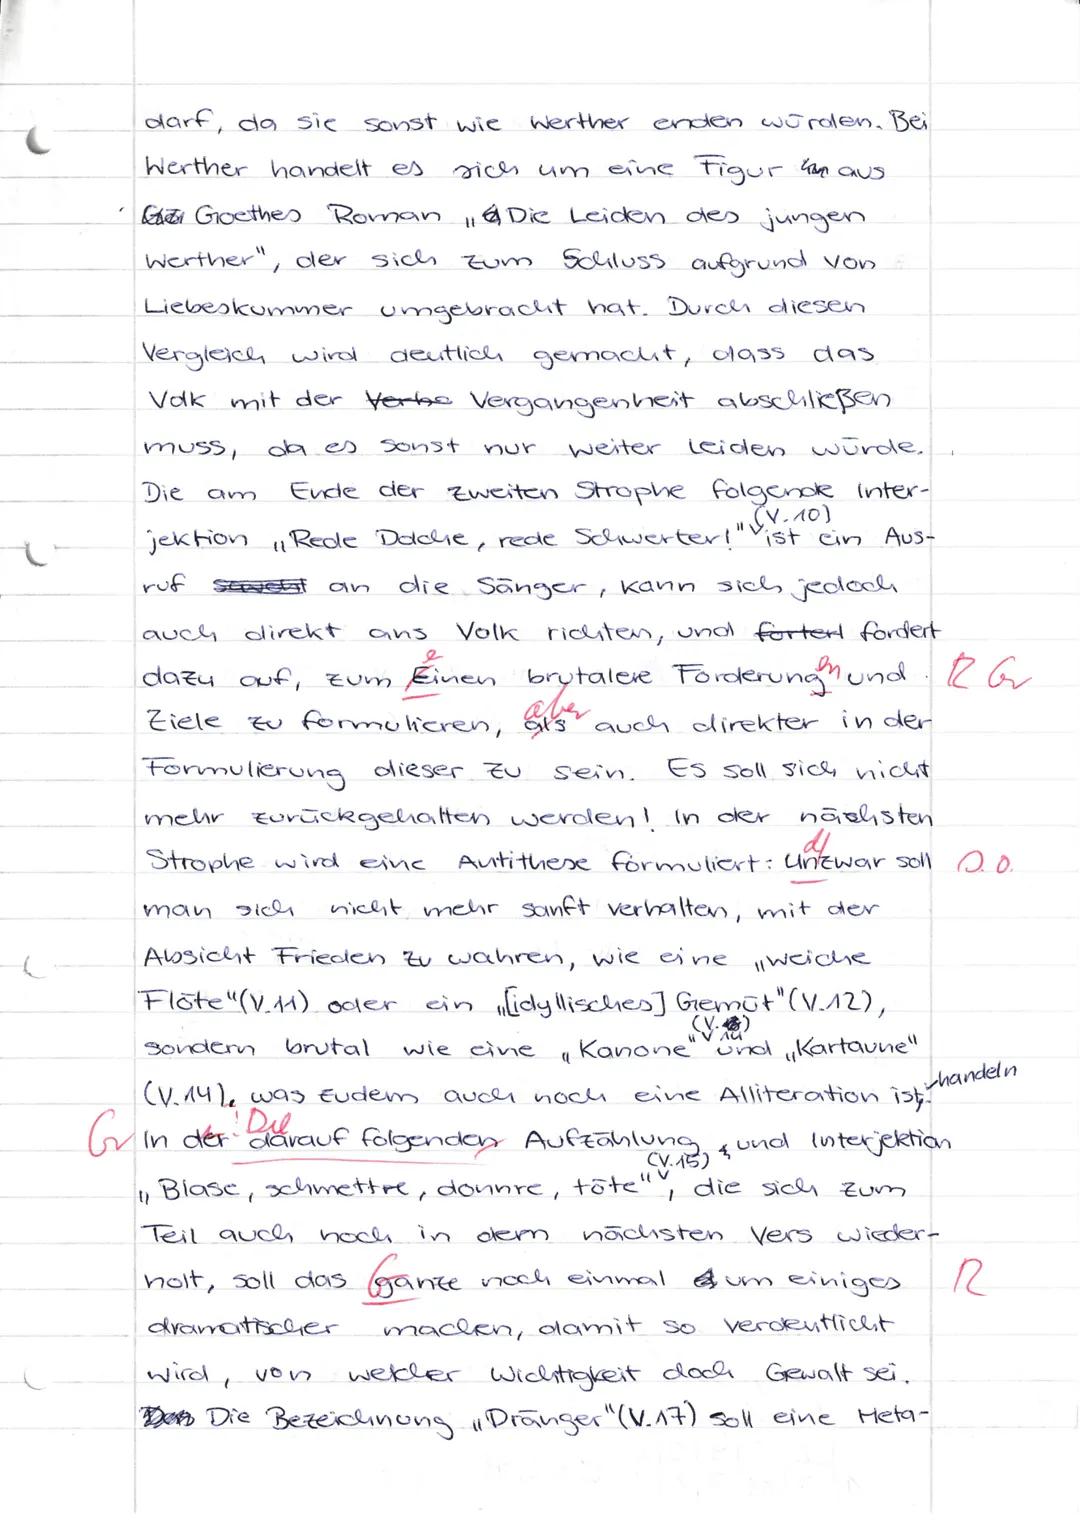 darf, da sie sonst wie Werther enden würden. Bei
Werther handelt es sich um eine Figur aus
Goethes Roman „Die Leiden des jungen
Werther", der sich zum Schluss aufgrund von
Liebeskummer umgebracht hat. Durch diesen
Vergleich wird deutlich gemacht, dass das
Volk mit der Verbe Vergangenheit abschließen
muss, da es sonst nur weiter leiden würde.
Die am Ende der zweiten Strophe folgende Inter-
(V.10)
jektion „Rede Dolche, rede Schwerter!" ist ein Aus-
ruf an die Sänger, kann sich jedoch
auch direkt ans Volk richten, und fortert fordert
e
dazu auf, zum Einen brutalere Forderung en und R Gr
aber
Ziele zu formulieren, als auch direkter in der
Formulierung dieser zu sein. Es soll sich nicht
mehr zurückgehalten werden! In der nächsten
d
Strophe wird eine Antithese formuliert: Unzwar soll s.o.
man sich nicht mehr sanft verhalten, mit der
Absicht Frieden zu wahren, wie eine „weiche
Flöte"(V.11) oder ein „[idyllisches] Gemüt"(V.12),
(V. 14)
sondern brutal wie eine „Kanone" und „Kartaune"
(V.14), was zudem auch noch eine Alliteration ist. handeln
Gr In der darauf folgenden Aufzählung und Interjektion
Die
(V.15)
„Blase, schmettre, donnre, töte", die sich zum
Teil auch noch in dem nächsten Vers wieder-
holt, soll das ganze noch einmal um einiges R
G
dramatischer machen, damit so verdeutlicht
wird, von welcher Wichtigkeit doch Gewalt sei.
Die Bezeichnung „Dränger"(V.17) soll eine Meta-